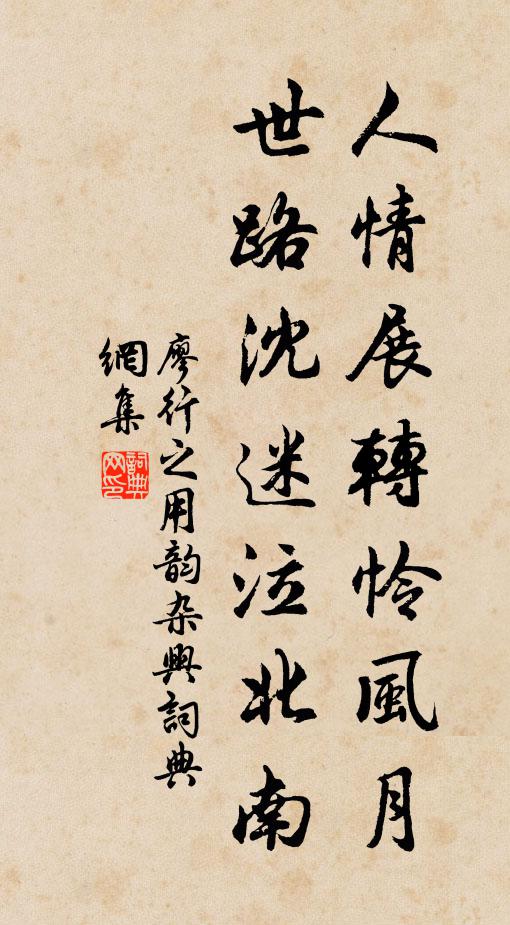 人情展轉怜風月
世路沈迷泣北南
廖行之用韵杂興詞典
網集
詞典網印